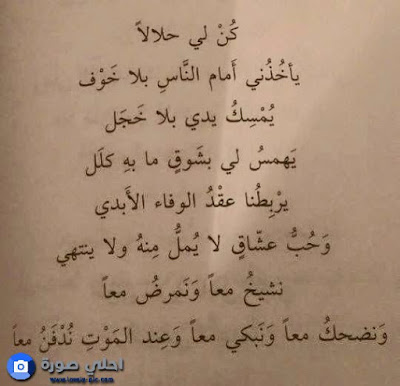 كُنْ لي حلالاً
يأخُذُني أَمام النَّاسِ بلا خَوْف
يُمْسِكُ يدي بلا خَجَل
يَهمسُ لي بشَوقٍ ما بهِ كلَل
يرْبِطُنا عقْدُ الوفاء الأَبدي
وَحُبُّ عشّاقٍ لا يُملُّ مِنهُ ولا ينتهي
نشيخُ معاً وَنَمرضُ معاً
وَنضحكُ معاً وَنَبكي معاً وَعِند المَوْتِ نُدْفَنُ معاً
احلاي صورة